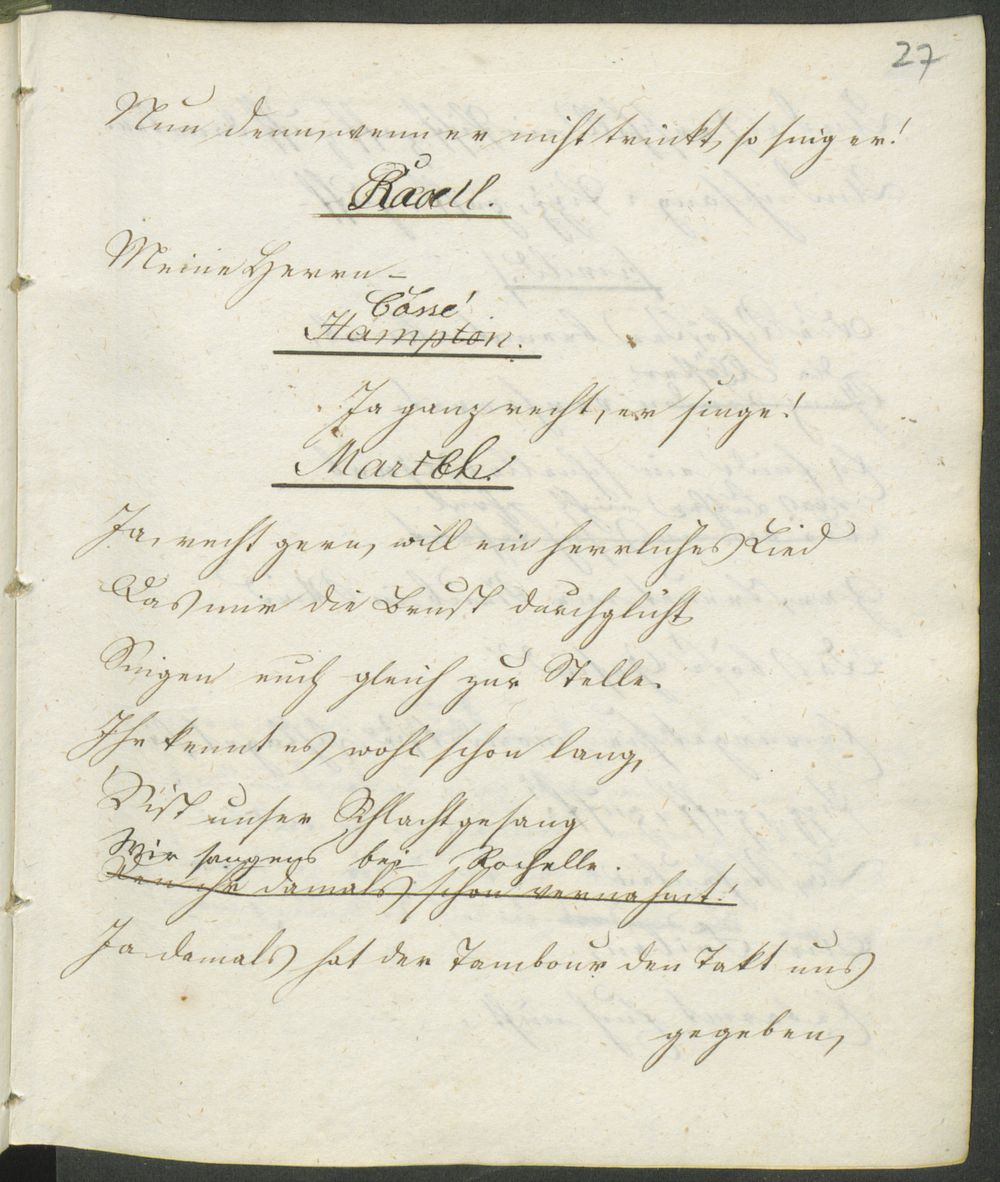 27
Nun denn, wenn er nicht trinkt, so sing er!
Raoell.
Meine Herrn –
Cossé
Hampton.
Ja ganz recht, er singe!
Marcell.
Ja, recht gern, will ein herrliches Lied
Das mir die Brust durchglüht
Singen euch gleich zur Stelle.
Ihr kennt es wohl schon lang,
's ist unser Schlachtgesang
Wir sangens bei Rochelle.
Den ihr damals schon vernahmt!
Ja damals hat der Tambour den Takt uns
gegeben,